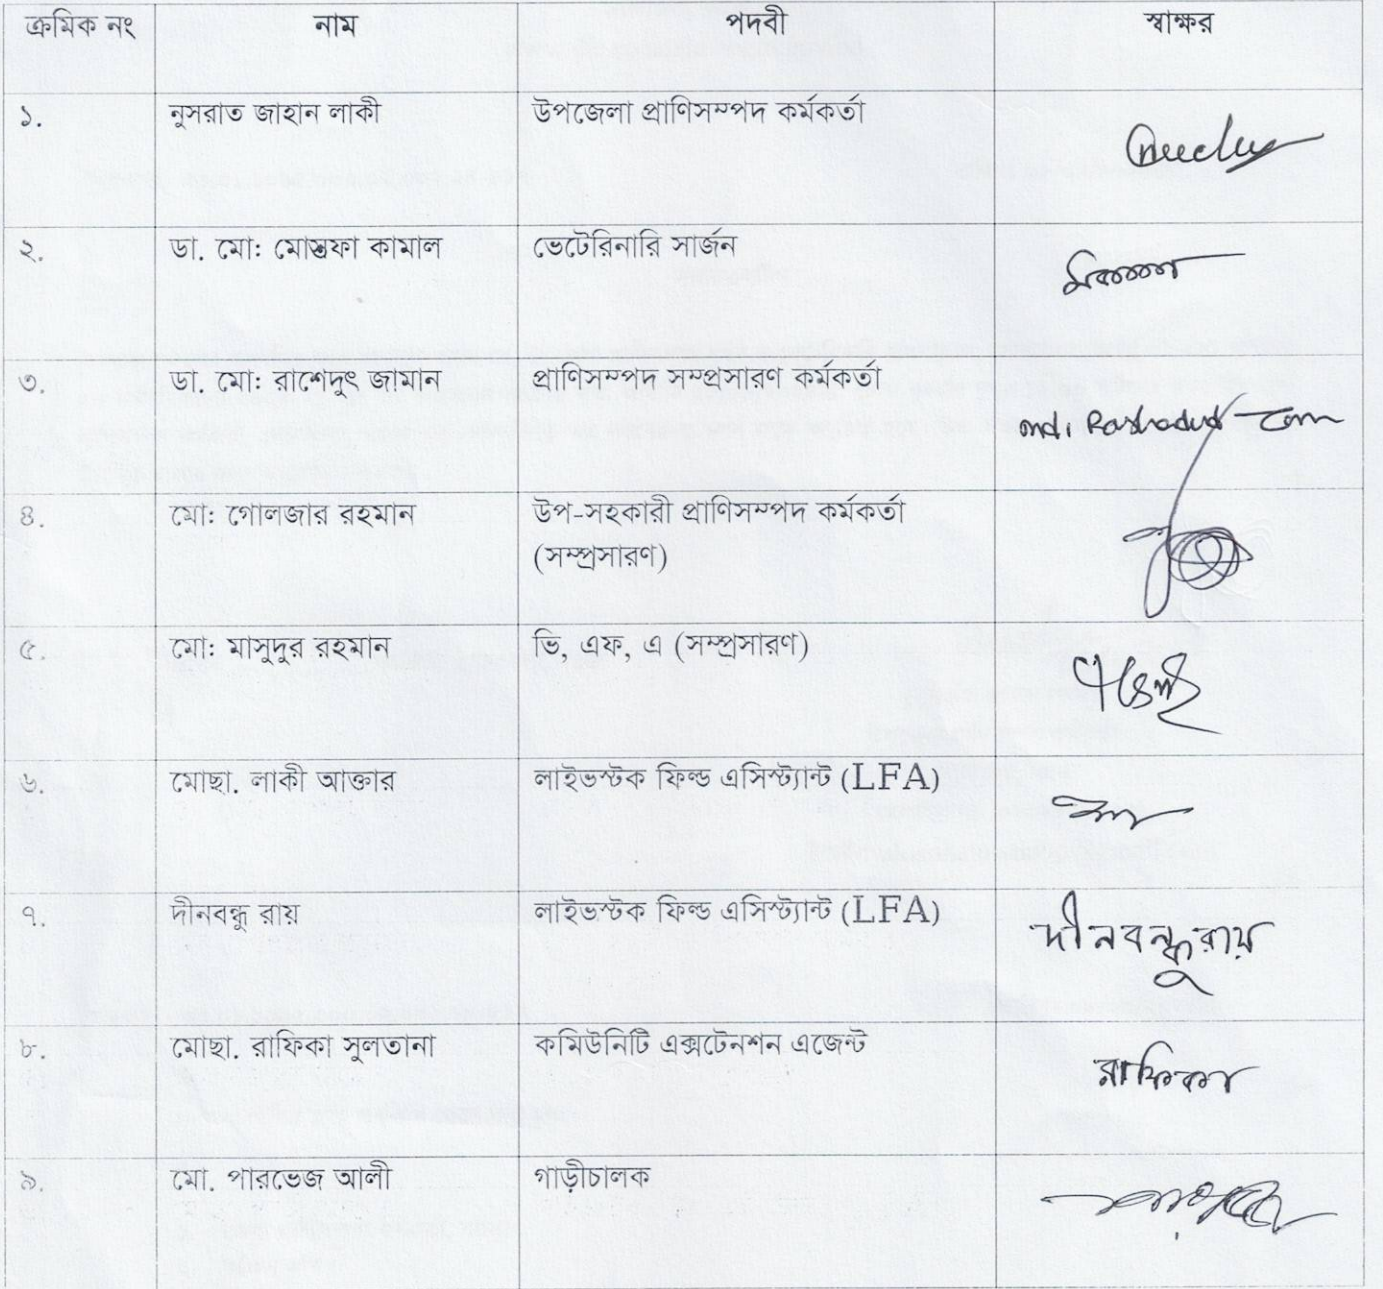 ক্রমিক নং নাম পদবী স্বাক্ষর
১. নুসরাত জাহান লাকী উপজেলা প্রাণিসম্পদ কর্মকর্তা
২. ডা. মো: মোস্তফা কামাল ভেটেরিনারি সার্জন
৩. ডা. মো: রাশেদুৎ জামান প্রাণিসম্পদ সম্প্রসারণ কর্মকর্তা
md. Rashadud
৪. মো: গোলজার রহমান উপ-সহকারী প্রাণিসম্পদ কর্মকর্তা
(সম্প্রসারণ)
৫. মো: মাসুদুর রহমান ভি, এফ, এ (সম্প্রসারণ)
৬. মোছা. লাকী আক্তার লাইভস্টক ফিল্ড এসিস্ট্যান্ট (LFA)
৭. দীনবন্ধু রায় লাইভস্টক ফিল্ড এসিস্ট্যান্ট (LFA)
দীনবন্ধু রায়
৮. মোছা. রাফিকা সুলতানা কমিউনিটি এক্সটেনশন এজেন্ট
রাফিকা
৯. মো. পারভেজ আলী গাড়ীচালক